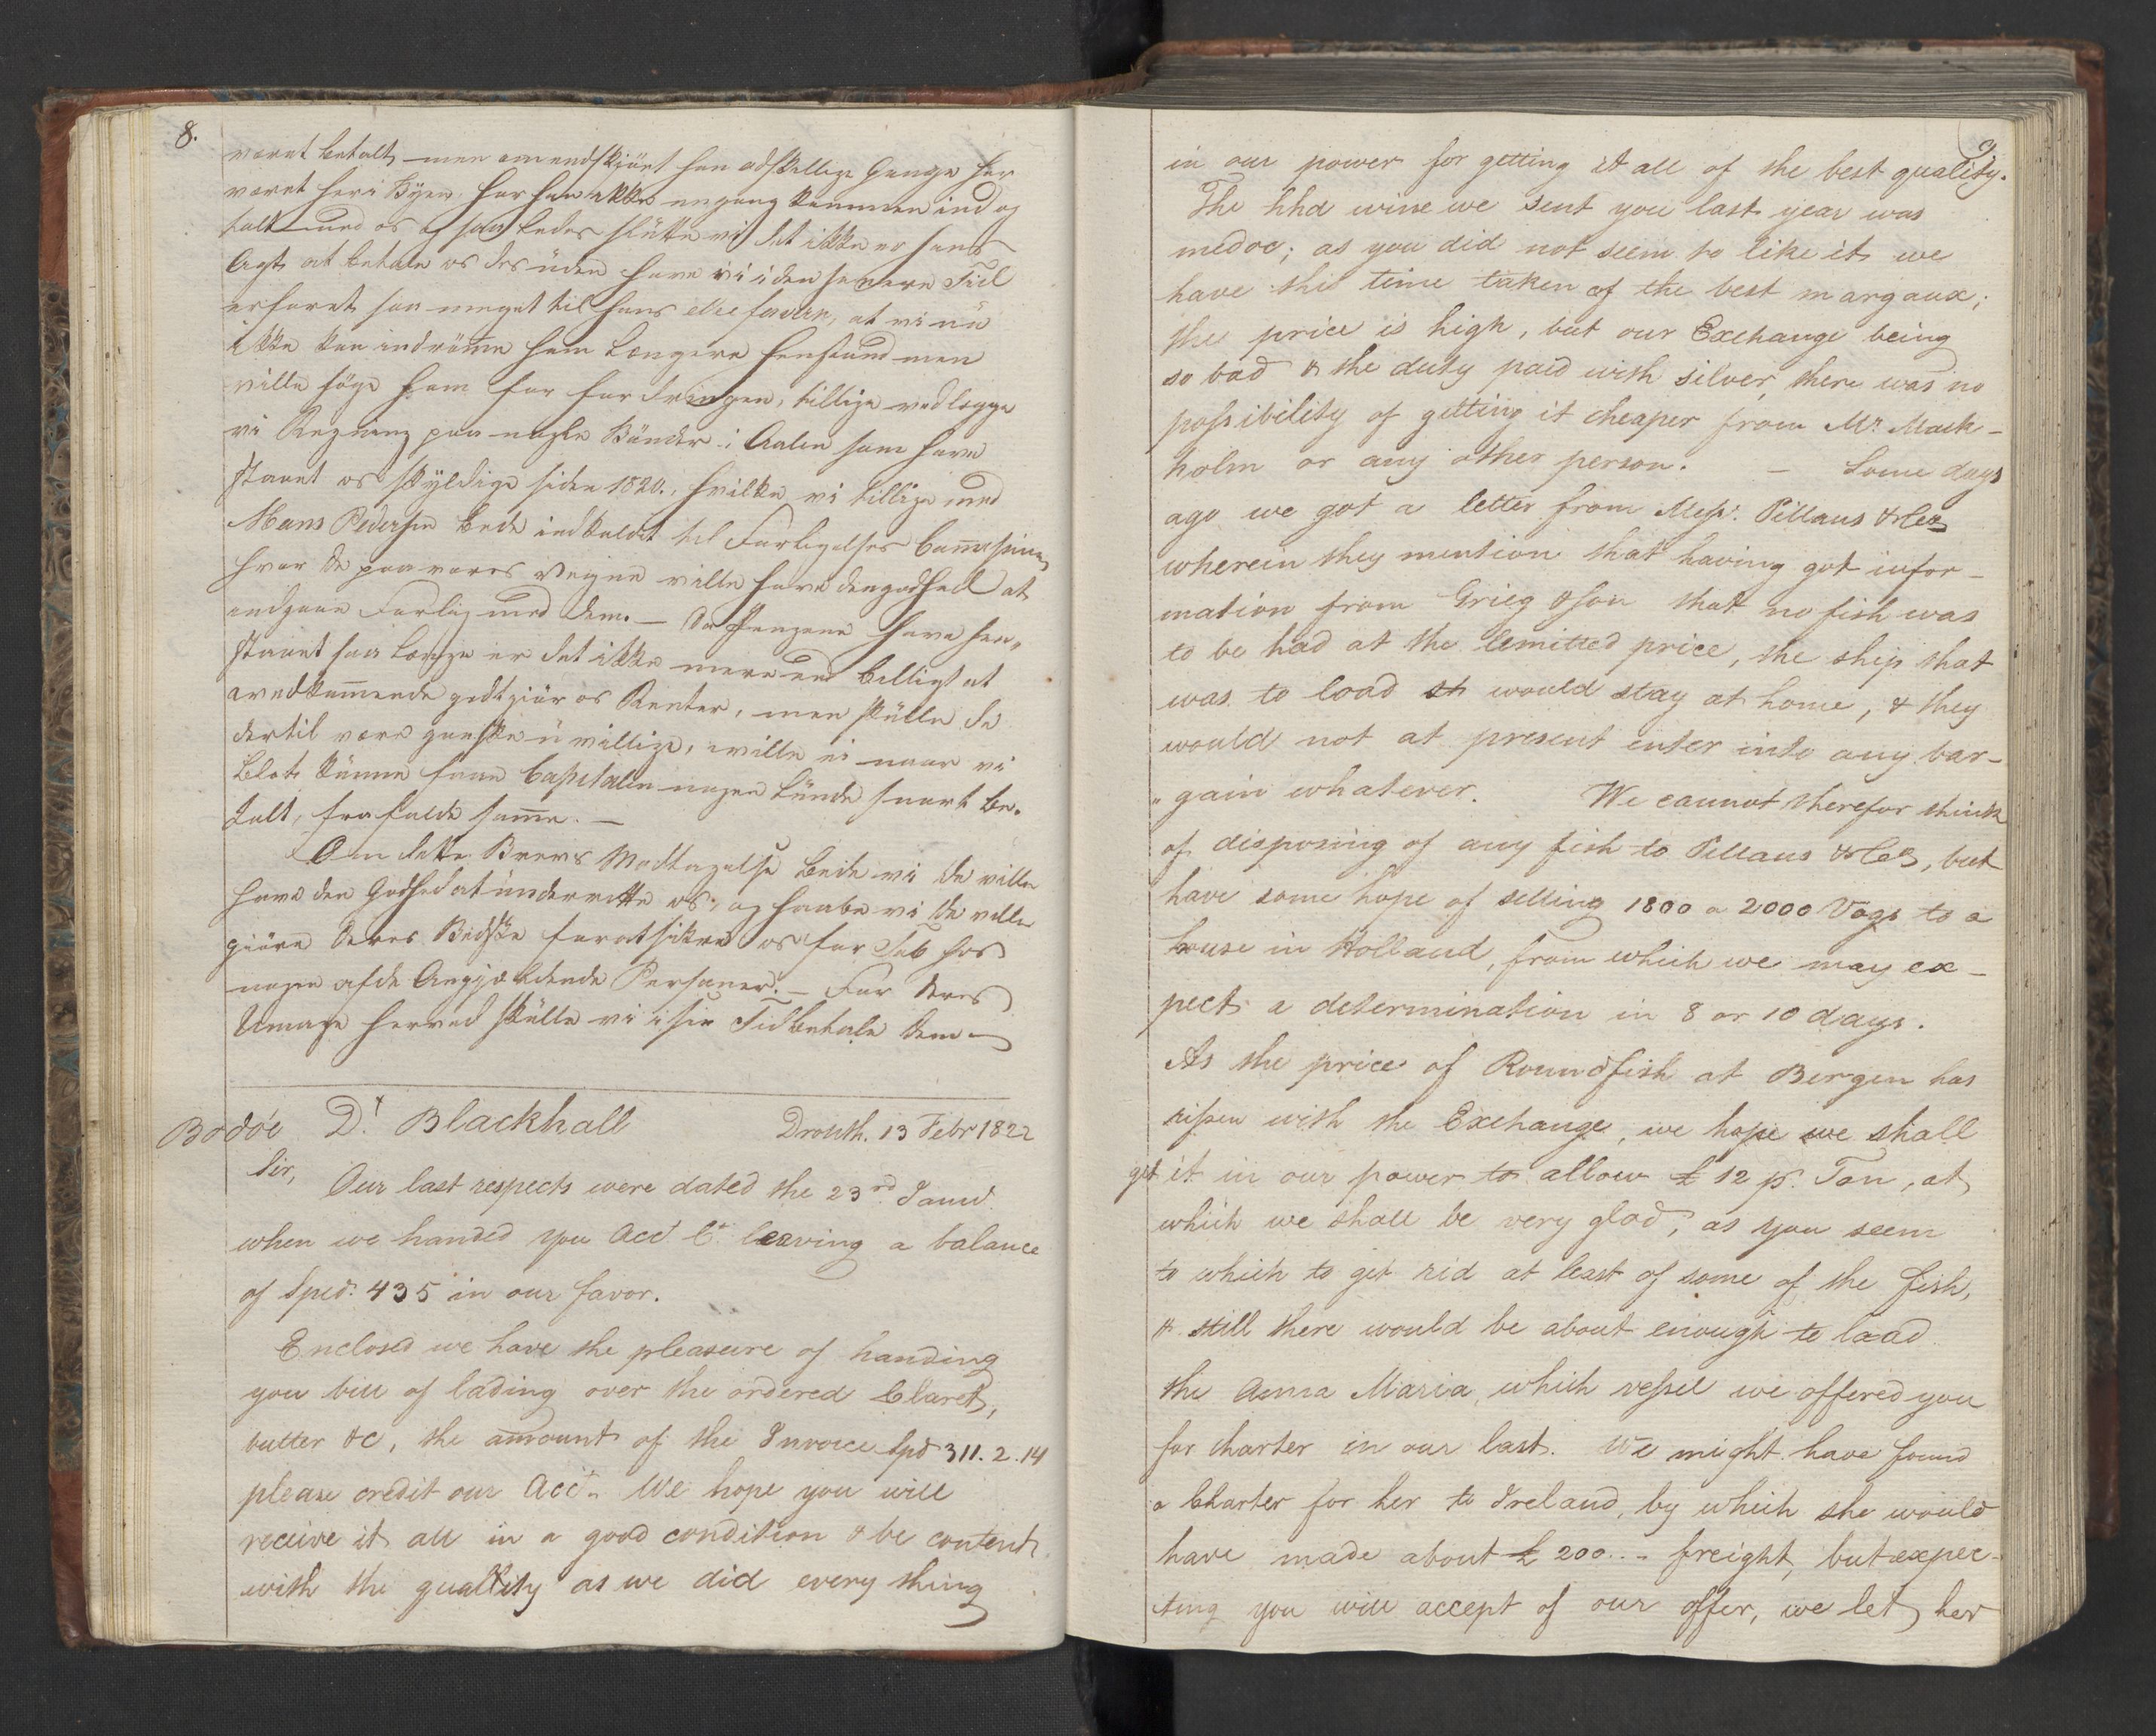 8.
været betalt, men om endskiönt han adskellige Gange har
været her i Byen, har han ikke engang kommen ind og
talt med os og saaledes slutte vi det ikke er hans
Agt at betale os desuden have vi i den senere Tiid
erfaret saa meget til hans at vi nu
ikke kan indrömme ham længere Henstand men
ville söge ham for fordringen, tillige vedlægge
vi Regning paa nogle Bönder i Aalen som have
staaet os skyldige siden 1820, hvilke vi tillige med
Mons Pedersen bede indkaldet til Forligelses Commission
hvor De paa vores Vegne ville have den godhed at
indgaae Forlig med dem. — Da Pengene have hen„
staaet saa længe er det ikke mere end billigt at
vedkommende godtgiör os Renter, men skulle de
dertil være ganske uvillige, ville vi naar vi
blot kunne faae Capitalen nogenlunde snart be„
talt, frafalde samme. —
Om dette Brevs Modtagelse bede vi De ville
have den Godhed at underrette os, og haabe vi De ville
giöre Deres Bedste for at sikre os for Tab hos
nogen af de Angjældende Personer. — For Deres
Umage herved skulle vi i sin Tid betale Dem —
Bodöe Dr Blackhall Dronth. 13 Febr 1822
Sir,
Our last respects were dated the 23rd Janu.
when we handed you Acct Ct leaving a balance
of Spd. 435 in our favor.
Enclosed we have the pleasure of handing
you bill of lading over the ordered Claret,
butter &c, the amount of the Invoice Spd 311.2.14
please credit our Acct. We hope you will
receive it all in a good condition & be content
with the quallity as we did every thing
9
in our power for getting it all of the best quality.
The hhd wine we sent you last year was
medoc; as you did not seem to like it we
have this time taken of the best margaux;
the price is high, but our Exchange being
so bad & the duty paid with silver, there was no
possibility of getting it cheaper from Mr. Mack-
holm or any other person. — Some days
ago we got a letter from Messr. Pillans & Co
wherein they mention that having got infor-
mation from Grieg & Son that no fish was
to be had at the lemitted price, the ship that
was to load st would stay at home, & they
would not at present enter into any bar-
„gain whatever. We cannot therefor think
of disposing of any fish to Pillans & Co, but
have some hope of selling 1800 a 2000 Vogs to a
house in Holland, from which we may ex-
pect a determination in 8 or 10 days.
As the price of Roundfish at Bergen has
rissen with the Exchange, we hope we shall
get it in our power to allow £ 12 p. Ton, at
which we shall be very glad, as you seem
to which to get rid at least of some of the fish,
& still there would be about enough to load
the Anna Maria, which vessel we offered you
for charter in our last. We might have found
a Charter for her to Ireland, by which she would
have made about £ 200.- freight, but expec-
ting you will accept of our offer, we let her